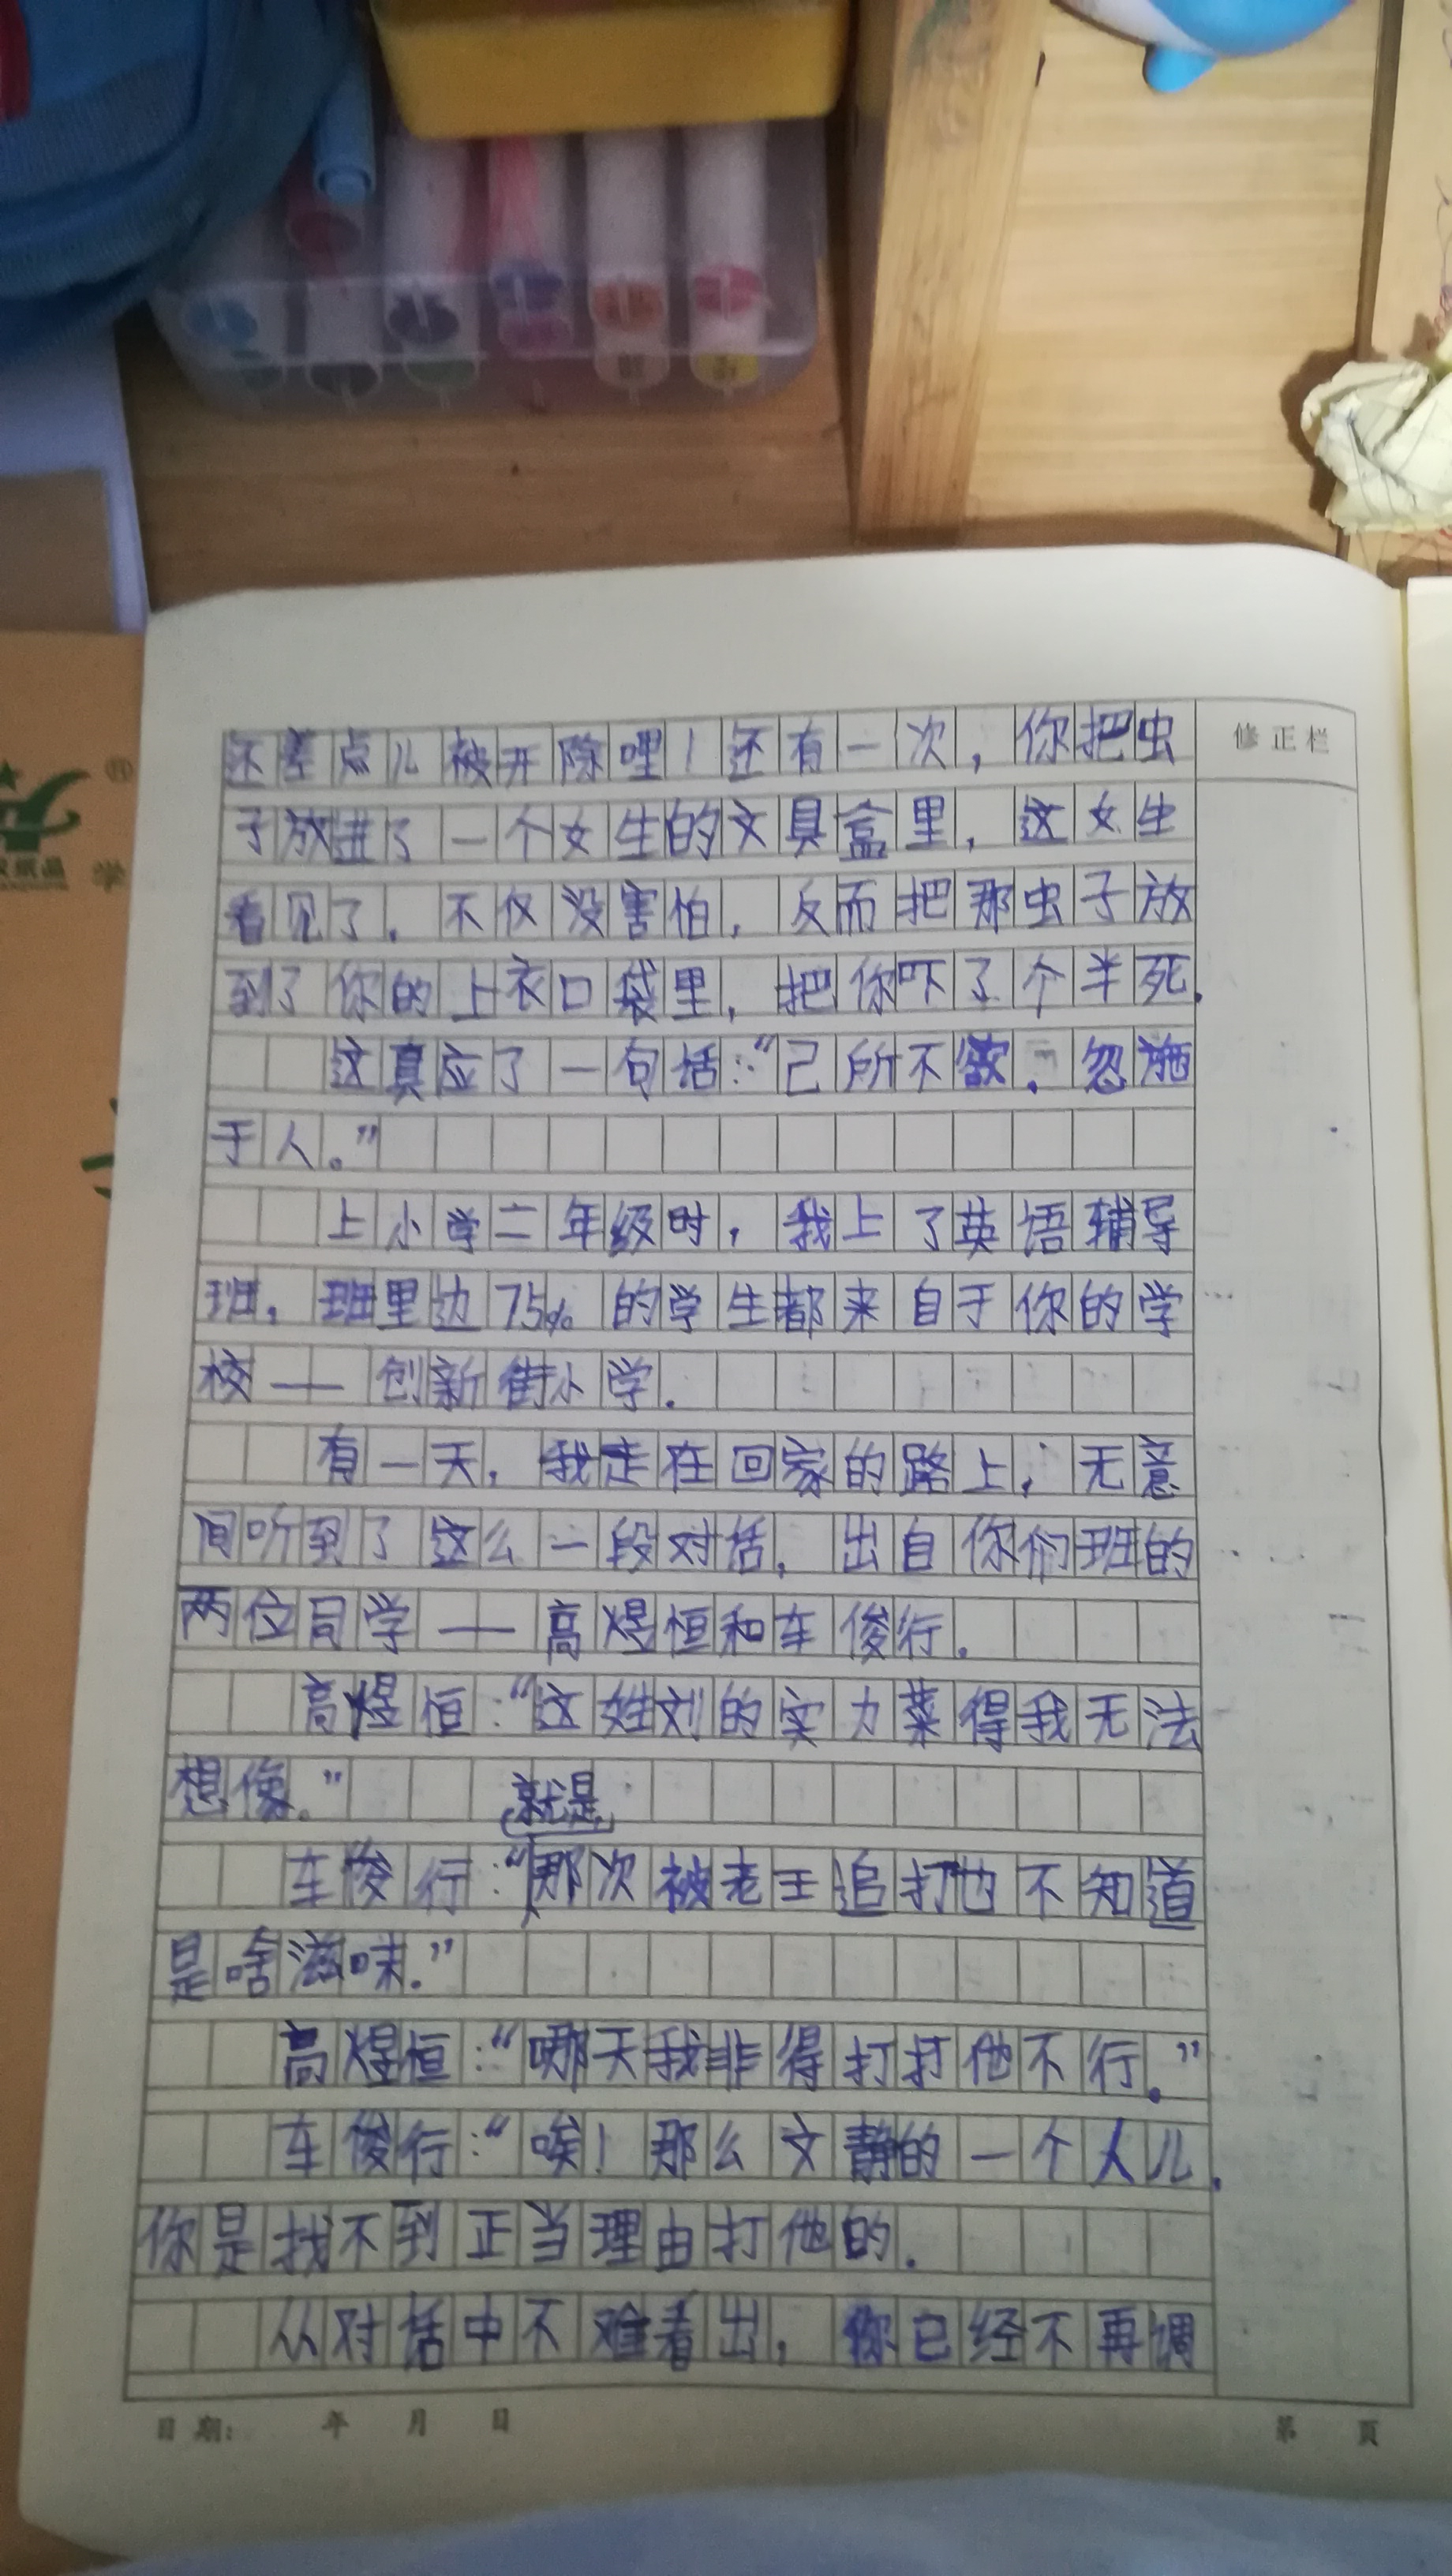 还差点儿被开除哩！还有一次，你把虫
修正栏
子放进了一个女生的文具盒里，这女生
看见了，不仅没害怕，反而把那虫子放
到了你的上衣口袋里，把你吓了个半死。
这真应了一句话：“己所不欲，忽施
于人。”
上小学二年级时，我上了英语辅导
班，班里边75%的学生都来自于你的学
校——创新街小学。
有一天，我走在回家的路上，无意
间听到了这么一段对话，出自你们班的
两位同学——高煜恒和车俊行。
高煜恒：“这姓刘的实力菜得我无法
想像。”
就是，
车俊行：“那次被老王追打他不知道
是啥滋味。”
高煜恒：“哪天我非得打打他不行。”
车俊行：“唉！那么文静的一个人儿，
你是找不到正当理由打他的。
从对话中不难看出，你已经不再调
日期： 年 月 日
第 頁
学